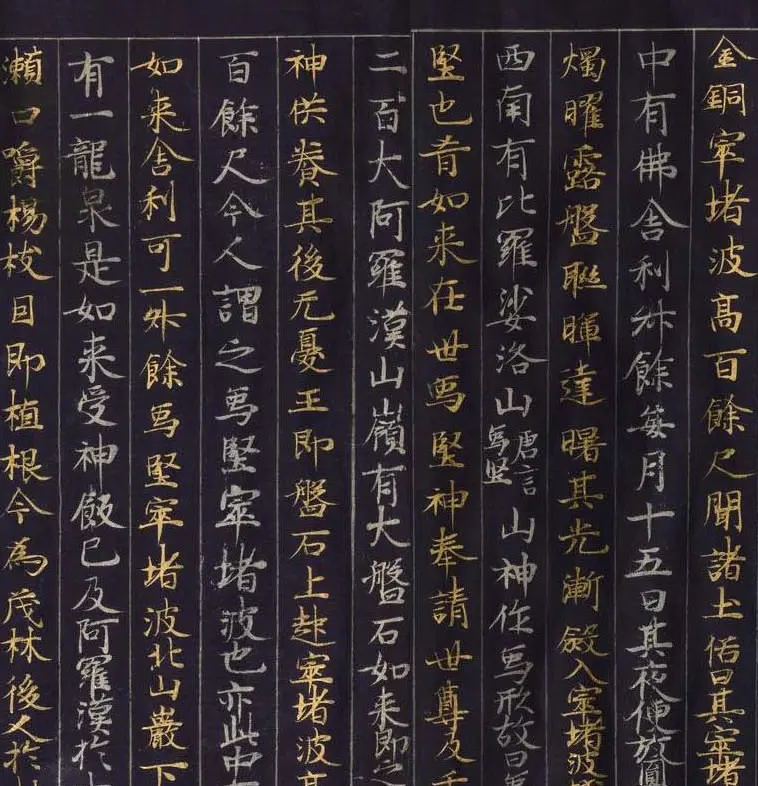 金銅窣堵波高百餘尺聞諸土俗曰其窣堵
中有佛舍利升餘每月十五日其夜便放圓
燭曜露盤聯暉達曙其光漸斂入窣堵波
西南有比羅娑洛山唐言象堅山神作象形故曰象
堅也昔如来在世象堅神奉請世尊及千
二百大阿羅漢山嶺有大盤石如来即之
神供養其後无憂王即盤石上起窣堵波高
百餘尺今人謂之象堅窣堵波也亦此中
如来舍利可一升餘象堅窣堵波北山巖下
有一龍泉是如来受神飯已及阿羅漢於
漱口嚼楊枝因即植根今為茂林後人於